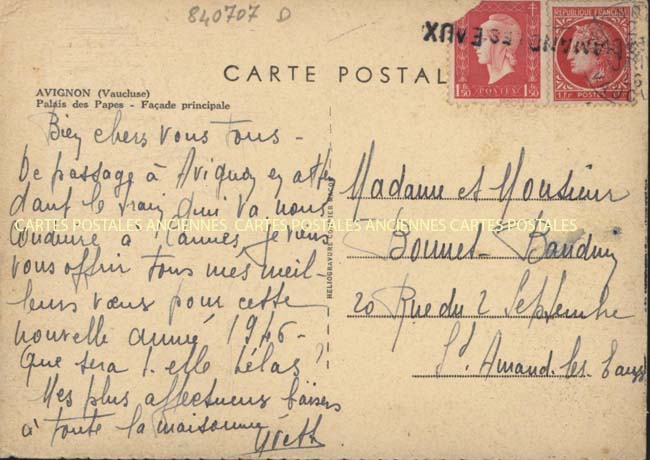 840707 D
AMAND LES EAUX
REPUBLIQUE FRANCAISE
1F50 POSTES 1F50
1F POSTES
CARTE POSTAL
AVIGNON (Vaucluse)
Palais des Papes - Façade principale
Bien chers vous tous -
De passage à Avignon en atten
dant le train qui va nous
conduire à Cannes, je viens
vous offrir tous mes meil-
leurs vœux pour cette
nouvelle année 1946 -
Que sera t-elle hélas!
Mes plus affectueux baisers
à toute la maisonnée
Yvette
HELIOGRAVURE
Madame et Monsieur
Bonnet-Bauduy
20 Rue du 2 Septembre
St. Amand-les-Eaux
CARTES POSTALES ANCIENNES CARTES POSTALES ANCIENNES CARTES POSTALES